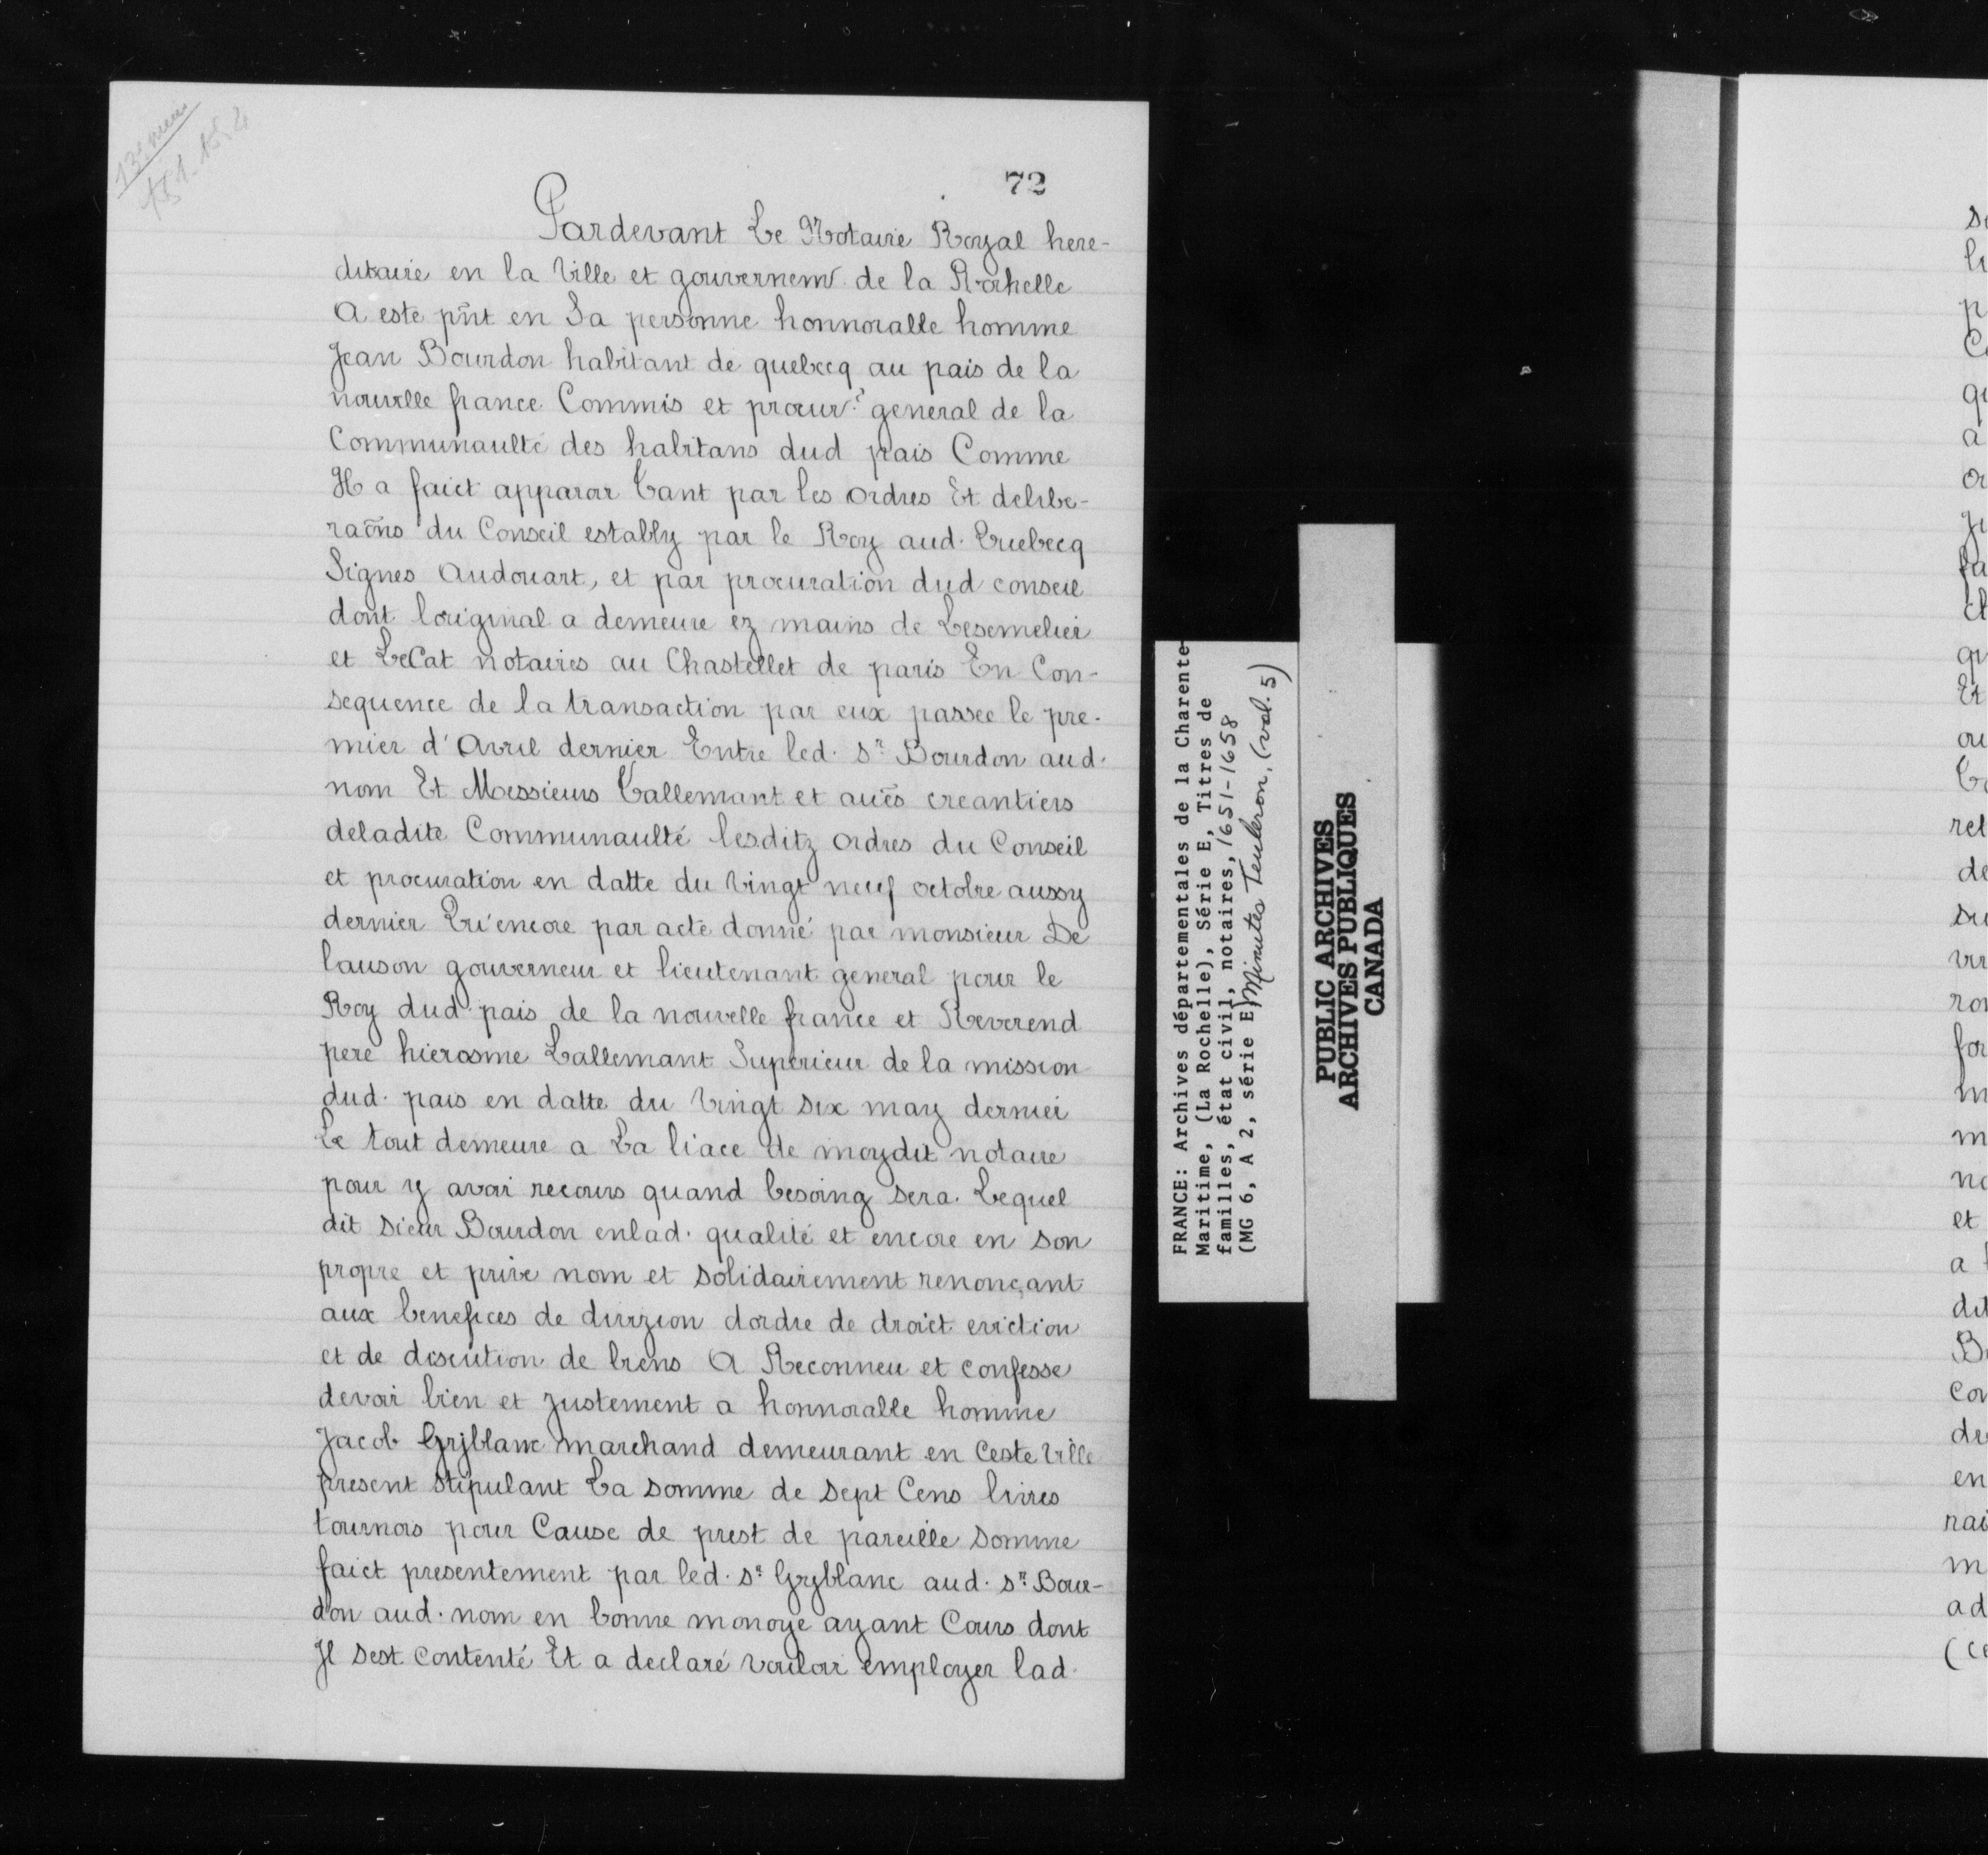 72
Pardevant Le Notaire Royal here-
ditaire en la Ville et gouvernem de la Rochelle
A este pñt en Sa personne honnoralle homme
Jean Bourdon habitant de quebecq au pais de la
nouvelle france Commis et procur.r general de la
Communaulté des habitans dud pais Comme
Il a faict apparoir tant par les ordres Et delibe-
raõns du Conseil estably par le Roy aud. Quebecq
Signes Audouart, et par procuration dud conseil
dont loriginal a demeure ez mains de Lesemelier
et LeCat notaires au Chastellet de paris En Con-
sequence de la transaction par eux passee le pre-
mier d'Avril dernier Entre led. Sr Bourdon aud.
nom Et Messieurs Lallemant et auẽs creantiers
deladite Communaulté lesditz ordres du Conseil
et procuration en datte du vingt neuf octobre aussy
dernier Qu'encore par acte donné par monsieur De
lauson gouverneur et lieutenant general pour le
Roy dud pais de la nouvelle france et Reverend
pere hierosme Lallemant Superieur de la mission
dud. pais en datte du Vingt six may dernier
Le tout demeure a La liace de moydit notaire
pour y avoir recours quand besoing sera. Lequel
dit sieur Bourdon enlad. qualité et encore en son
propre et prive nom et solidairement renonçant
aux benefices de divizion dordre de droict eviction
et de discution de biens A Reconneu et confesse
devoir bien et justement a honnoralle homme
Jacob Gryblanc marchand demeurant en Ceste Ville
present stipulant La somme de sept Cens livres
tournois pour Cause de prest de pareille somme
faict presentement par led. sr Gryblanc aud. sr Bour-
don aud. nom en bonne monoye ayant Cours dont
Il sest contenté Et a declaré vouloir employer lad.
FRANCE: Archives départementales de la Charente-
Maritime, (La Rochelle), Série E, Titres de
familles, état civil, notaires, 1651-1658
(MG 6, A 2, série E) Minutes Teuleron, (vol. 5)
PUBLIC ARCHIVES
ARCHIVES PUBLIQUES
CANADA